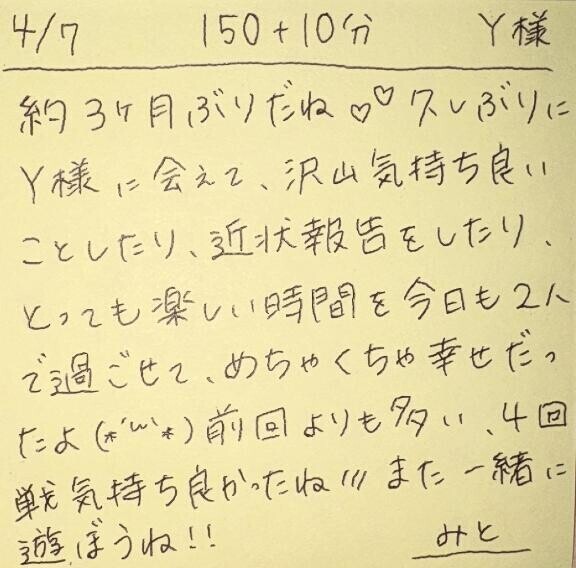 4/7 150+10分 Y様
約3ヶ月ぶりだね♡♡久しぶりに
Y様に会えて、沢山気持ち良い
ことしたり、近状報告をしたり、
とっても楽しい時間を今日も2人
で過ごせて、めちゃくちゃ幸せだっ
たよ(*´ω`*)前回よりも多い、4回
戦気持ち良かったね!!!また一緒に
遊ぼうね!! みと